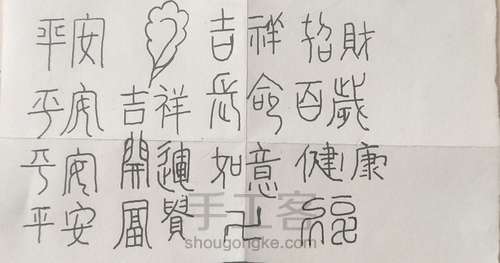 平安 吉祥 招財
平安 吉祥 長命百歲
平安 開運 如意 健康
平安 富貴
手工客
shougongke.com